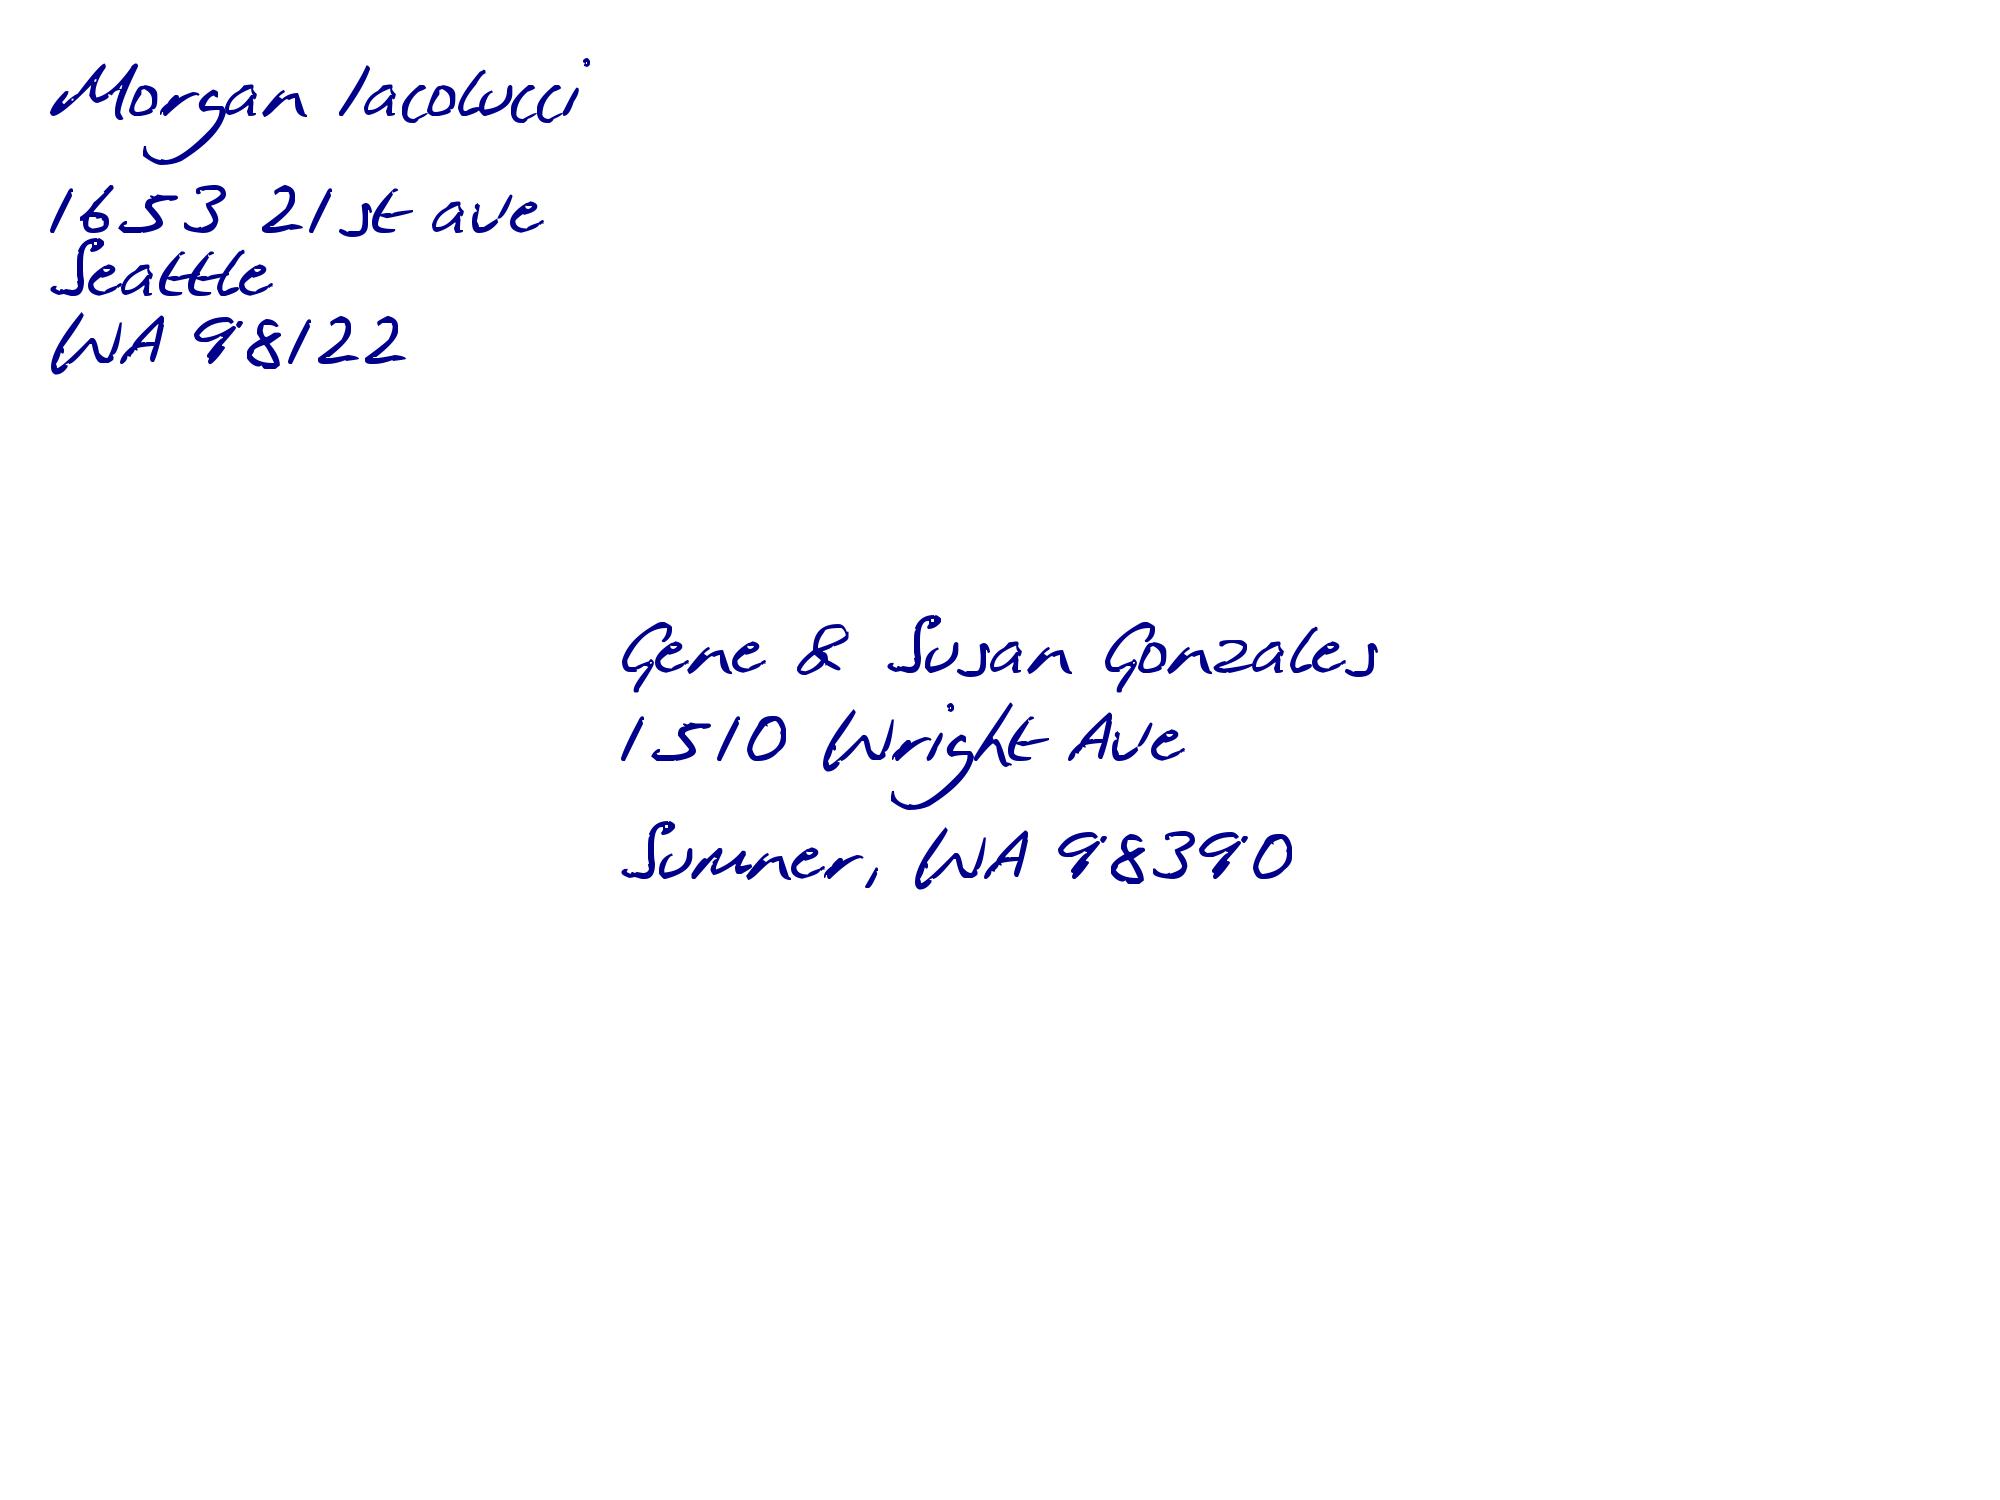 Morgan Iacolucci
1653 21st ave
Seattle
WA 98122
Gene & Susan Gonzales
1510 Wright Ave
Sumner, WA 98390